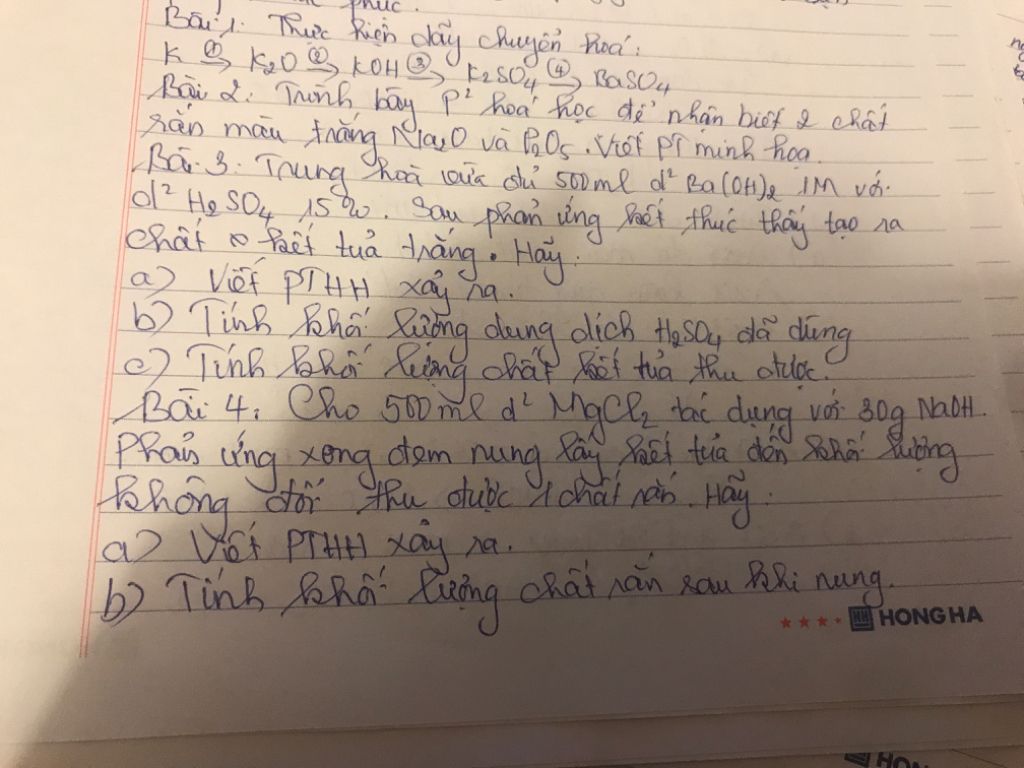 phúc.
Bài 1: Thực hiện dãy chuyển hoá:
K ①→ K2O ②→ KOH ③→ K2SO4 ④→ BaSO4
Bài 2: Trình bày p² hoá học để nhận biết 2 chất
rắn màu trắng Na2O và P2O5. Viết PT minh họa.
Bài 3: Trung hoà vừa đủ 500ml d² Ba(OH)2 1M với
d² H2SO4 15%. Sau phản ứng kết thúc thấy tạo ra
chất kết tủa trắng. Hãy:
a) Viết PTHH xảy ra.
b) Tính khối lượng dung dịch H2SO4 đã dùng
c) Tính khối lượng chất kết tủa thu được.
Bài 4: Cho 500ml d² MgCl2 tác dụng với 30g NaOH.
Phản ứng xong đem nung lấy kết tủa đến khối lượng
không đổi thu được 1 chất rắn. Hãy:
a) Viết PTHH xảy ra.
b) Tính khối lượng chất rắn sau khi nung.
HONG HA
HON